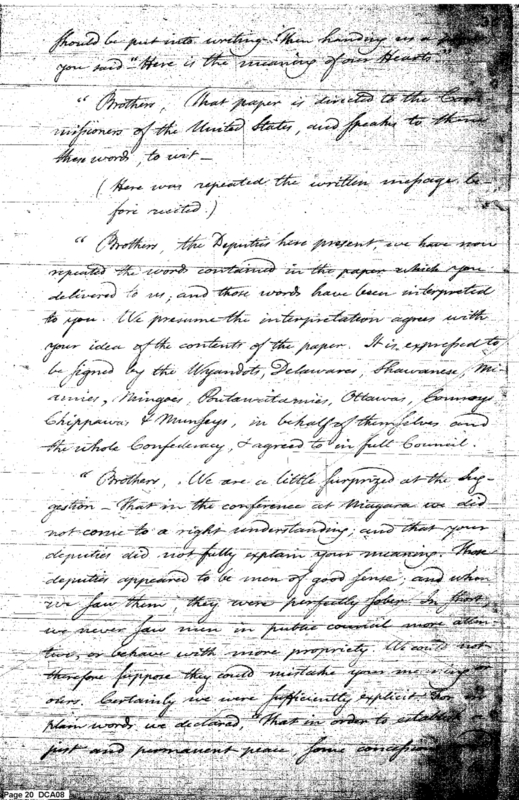 should be put into writing. Then handing us a
you said "Here is the meaning of our Hearts."
" Brothers, That paper is directed to the Com-
missioners of the United States, and speaks to them
these words, to wit —
( Here was repeated the written message be-
fore recited.)
" Brothers, the Deputies here present, we have now
repeated the words contained in the paper which you
delivered to us, and those words have been interpreted
to you. We presume the interpretation agrees with
your idea of the contents of the paper. It is expressed to
be signed by the Wyandots, Delawares, Shawanese, Mi-
amies, Mingoes, Pautawatamies, Ottawas, Connoys
Chippawas & Munseys, in behalf of themselves and
the whole Confederacy, & agreed to in full Council.
" Brothers, We are a little surprized at the sug-
gestion — that in the conference at Niagara we did
not come to a right understanding; and that your
deputies did not fully explain your meaning. Those
deputies appeared to be men of good sense; and when
we saw them, they were perfectly sober. In short,
we never saw men in public council more atten-
tive, or behave with more propriety. We could not
therefore suppose they could mistake your meaning or
ours. Certainly we were sufficiently explicit; for in
plain words we declared, "That in order to establish
just and permanent peace, some concessions
Page 20 DCA08